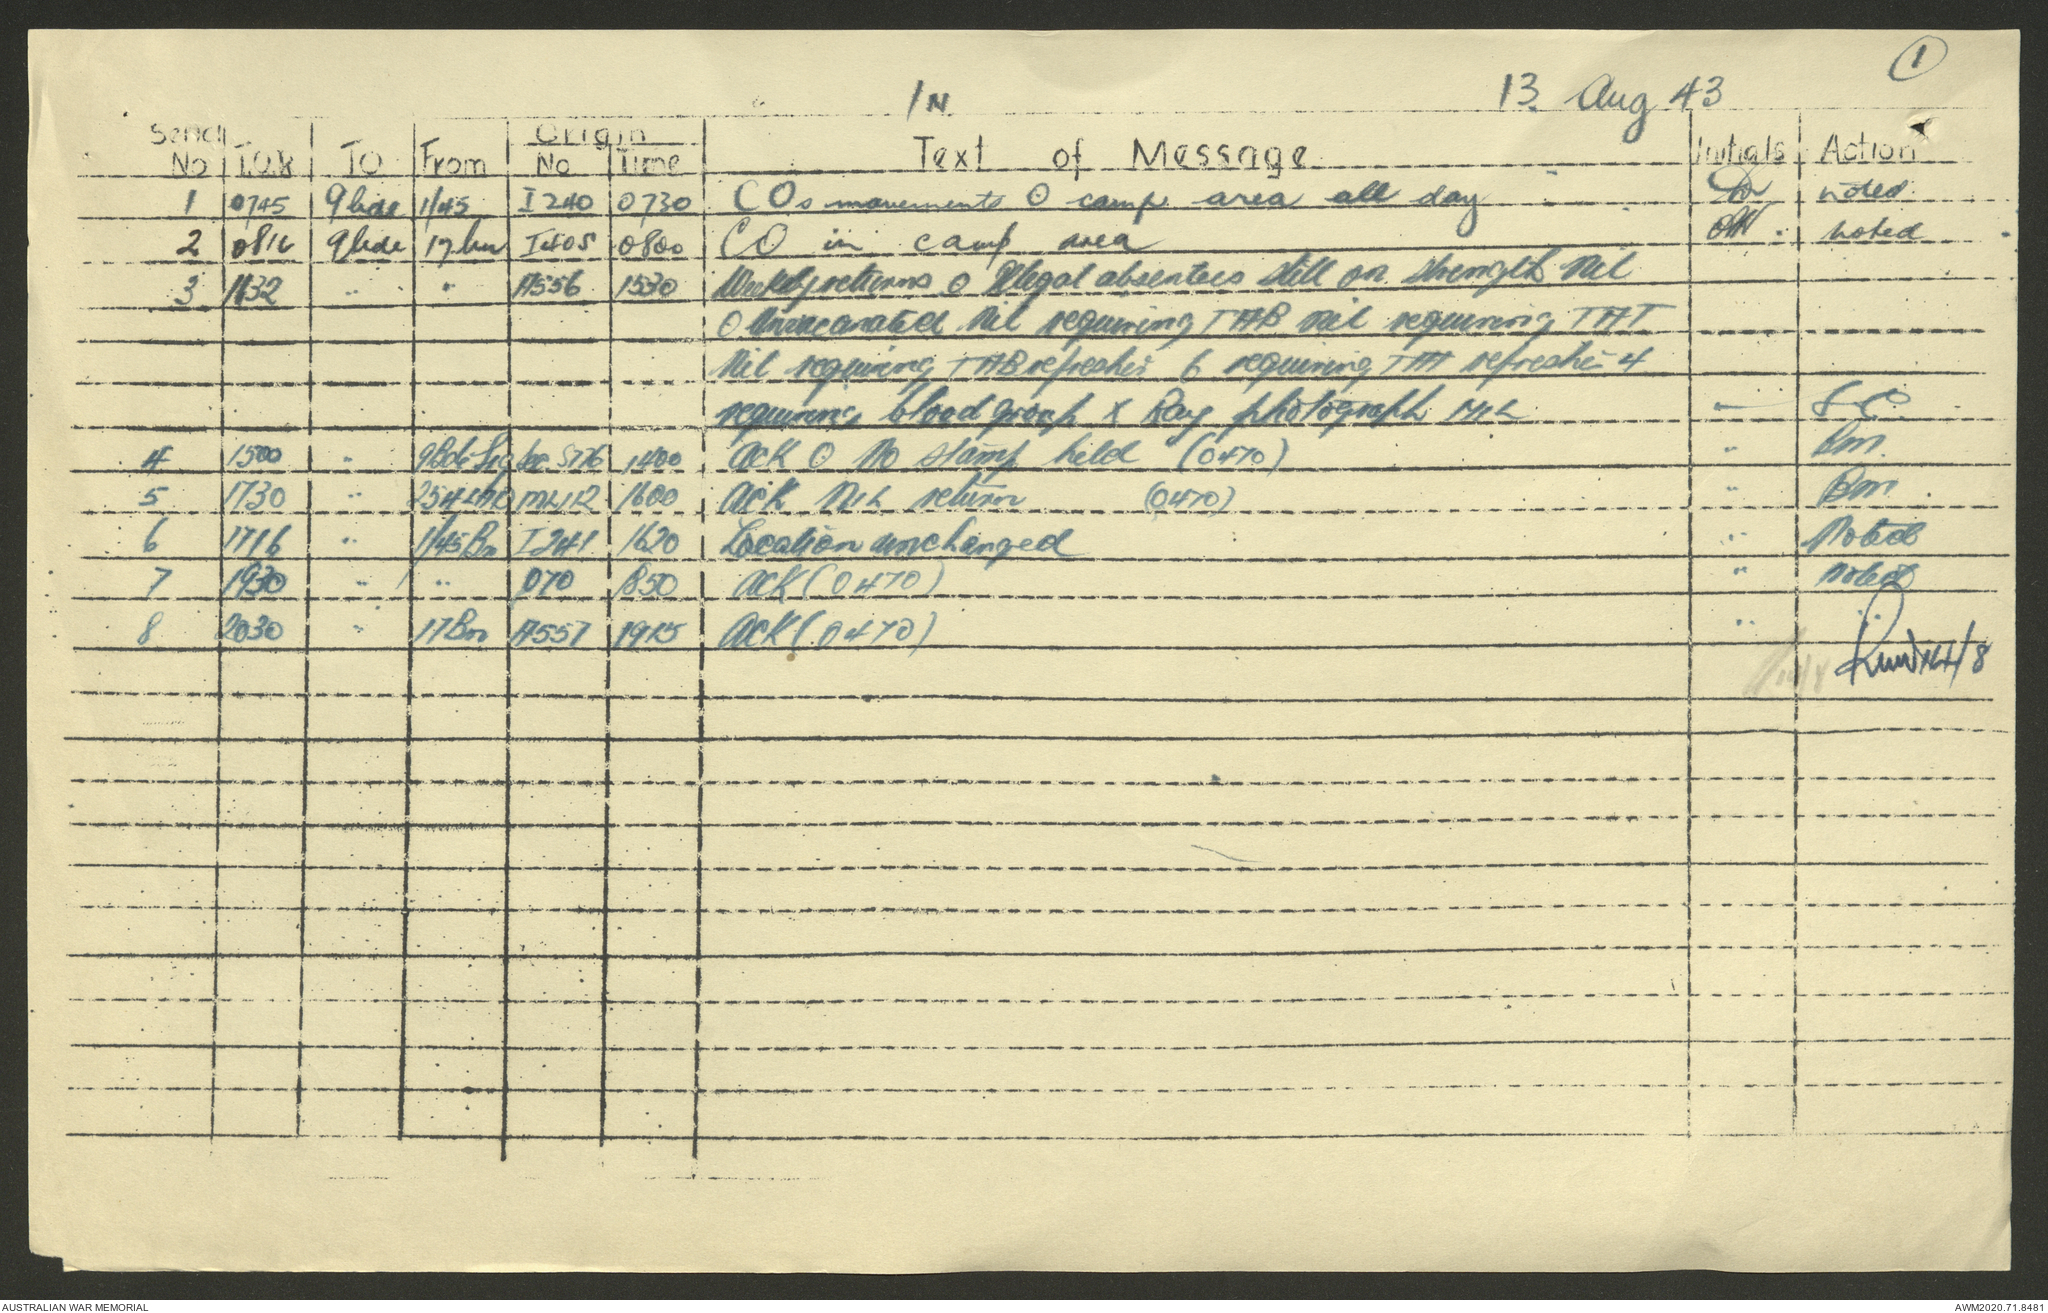 1
IN 13 Aug 43
Serial No T.O.R TO From Origin No Time Text of Message Initials Action
1 0745 9 bde 1/45 I240 0730 COs movements O camp area all day noted
2 9 bde 17 bn I405 0800 CO in camp area noted
3 1132 " " A556 1530 Weekly returns O Illegal absentees still on strength Nil
O Nil requiring TAB nil requiring TAT
Nil requiring TAB refresher 6 requiring TAT refresher 4
requiring blood group X Ray photograph NIL " S-C
4 1500 " 9 Bde Sig Sec 1400 ACK O No stamp held (O470) " Bm.
5 1730 " 1600 ACK NIL return (O470) " Bm.
6 1716 " 1/45 Bn I241 1620 Location unchanged " Noted
7 1930 " " O70 1850 ACK (O470) " noted
8 2030 " 17 Bn A557 1915 ACK (O470) " "
14/8
AUSTRALIAN WAR MEMORIAL AWM2020.71.8481